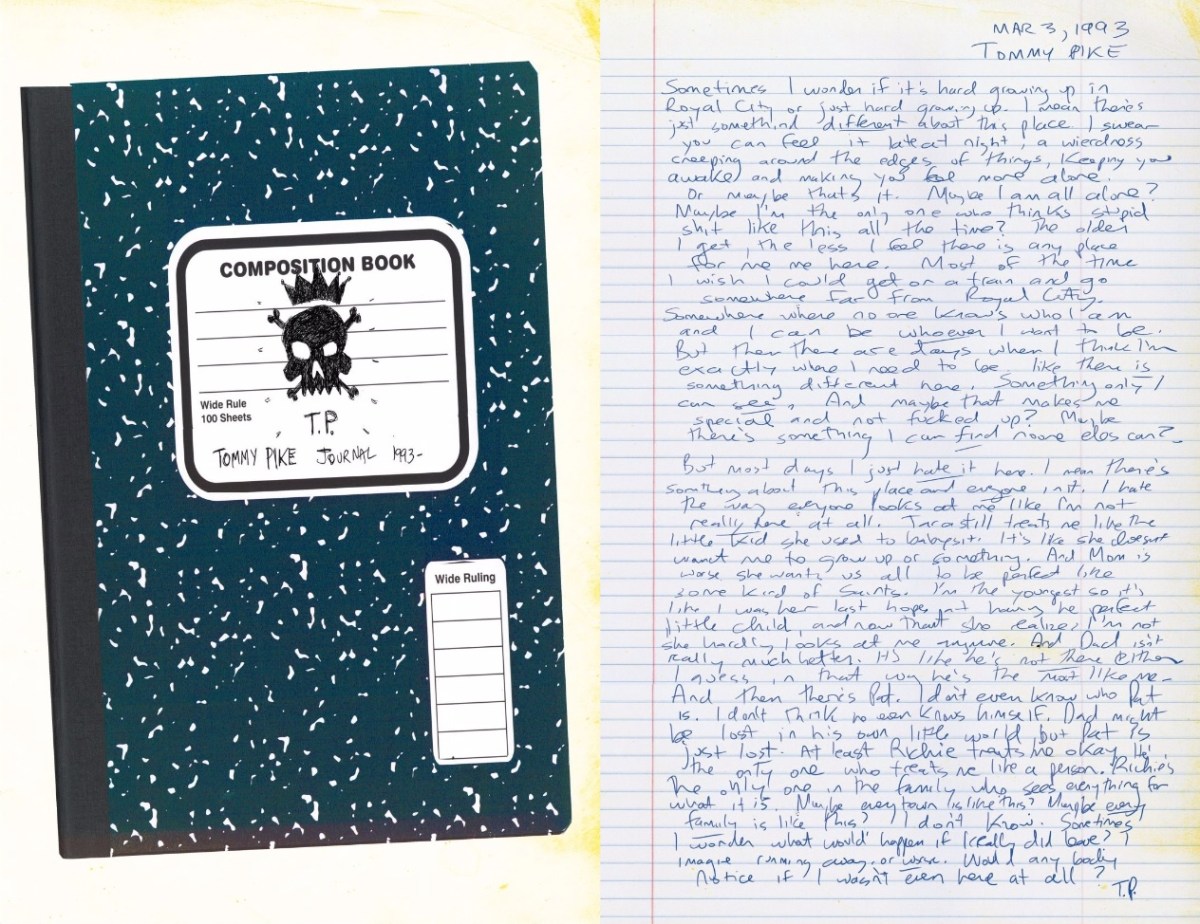 COMPOSITION BOOK
Wide Rule
100 Sheets
T.P.
TOMMY PIKE JOURNAL 1993-
Wide Ruling
MAR 3, 1993
TOMMY PIKE
Sometimes I wonder if it's hard growing up in
Royal City or just hard growing up. I mean there's
just somethind different about this place. I swear
you can feel it late at night, a wierdness
creeping around the edges of things, keeping you
awake and making you feel more alone.
Or maybe that's it. Maybe I am all alone?
Maybe I'm the only one who thinks stupid
shit like this all the time? The older
I get, the less I feel there is any place
for me me here. Most of the time
I wish I could get on a train and go
somewhere far from Royal City.
Somewhere where no one know's who I am
and I can be whoever I want to be.
But then there are days when I think I'm
exactly where I need to be, like there is
something different here. Something only I
can see. And maybe that makes me
special and not fucked up? Maybe
there's something I can find noone elos can?
But most days I just hate it here. I mean there's
somthing about this place and everyone in it. I hate
the way everyone looks at me like I'm not
really here at all. Tara still treats me like the
little kid she used to babysit. It's like she doesn't
want me to grow up or something. And Mom is
worse she wants us all to be perfect like
some kind of Saints. I'm the youngest so it's
like I was her last hope at having he perfect
little child, and now that she realize, I'm not
she hardly looks at me anymore. And Dad isn't
really much better. It's like he's not there either
I guess, in that way he's the most like me.
And then there's Pat. I don't even know who Pat
is. I don't think he even knows himself. Dad might
be lost in his own little world but Pat is
just lost. At least Richie treats me okay. He's
the only one who treats me like a person. Richie's
the only one in the family who sees everything for
what it is. Maybe every town is like this? Maybe every
family is like this? I don't know. Sometimes
I wonder what would happen if I really did leave? I
imagine running away. or worse. Would any body
Notice if I wasn't even here at all?
T.P.